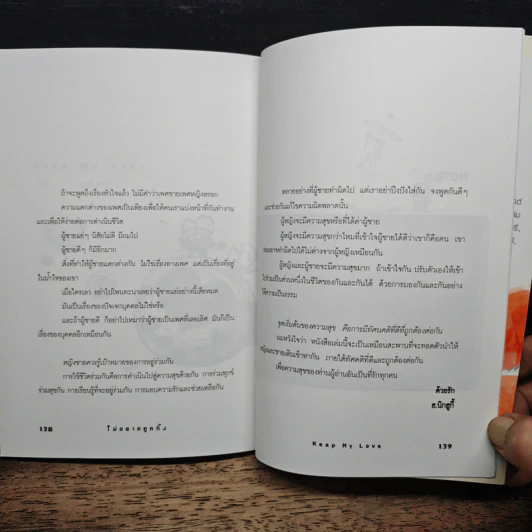 ถ้าจะพูดถึงเรื่องหัวใจแล้ว ไม่มีคำว่าเพศชายเพศหญิงหรอก
ความแตกต่างของเพศเป็นเพียงเพื่อให้คนเราแบ่งหน้าที่กันทำงาน
และเพื่อให้ง่ายต่อการดำเนินชีวิต
ผู้ชายแย่ๆ นิสัยไม่ดี มีถมไป
ผู้ชายดีๆ ก็มีอีกมาก
สิ่งที่ทำให้ผู้ชายแตกต่างกัน ไม่ใช่เรื่องทางเพศ แต่เป็นเรื่องที่อยู่
ในน้ำใจของเขา
เมื่อใครเลว อย่าไปโพนทะนาเลยว่าผู้ชายแย่อย่างนี้เสียหมด
มันเป็นเรื่องของปัจเจกบุคคลไม่ใช่หรือ
และถ้าผู้ชายดี ก็อย่าไปเหมาว่าผู้ชายเป็นเพศที่เลอเลิศ มันก็เป็น
เรื่องของบุคคลอีกเหมือนกัน
หญิงชายควรรู้เป้าหมายของการอยู่ร่วมกัน
การใช้ชีวิตร่วมกันคือการดำเนินไปสู่ความสุขด้วยกัน การร่วมทุกข์
ร่วมสุขกัน การเรียนรู้ที่จะอยู่ร่วมกัน การมอบความรักและช่วยเหลือกัน
138
ไม่อยากถูกทิ้ง
หลายอย่างที่ผู้ชายทำผิดไป แต่เราอย่าปึงปังใส่กัน จงพูดกันดีๆ
และช่วยกันแก้ไขความผิดพลาดนั้น
ผู้หญิงจะมีความสุขหรือที่ได้ด่าผู้ชาย
ผู้หญิงจะมีความสุขกว่าไหมที่เข้าใจผู้ชายได้ดีว่าเขาก็คือคน เขา
ย่อมอาจผิดไปได้ไม่ต่างจากผู้หญิงเหมือนกัน
ผู้หญิงและผู้ชายจะมีความสุขมาก ถ้าเข้าใจกัน ปรับตัวเองให้เข้า
ไปร่วมเป็นส่วนหนึ่งในชีวิตของกันและกันได้ ด้วยการมองกันและกันอย่าง
ให้ความเป็นธรรม
จุดเริ่มต้นของความสุข คือการมีทัศนคติที่ดีที่ถูกต้องต่อกัน
ผมหวังใจว่า หนังสือเล่มนี้จะเป็นเหมือนสะพานที่จะทอดตัวนำให้
หญิงและชายเดินเข้าหากัน ภายใต้ทัศคติที่ดีและถูกต้องต่อกัน
เพื่อความสุขของท่านผู้อ่านอันเป็นที่รักทุกคน
ด้วยรัก
ส.นิกฮูกี้
Keep My Love
139